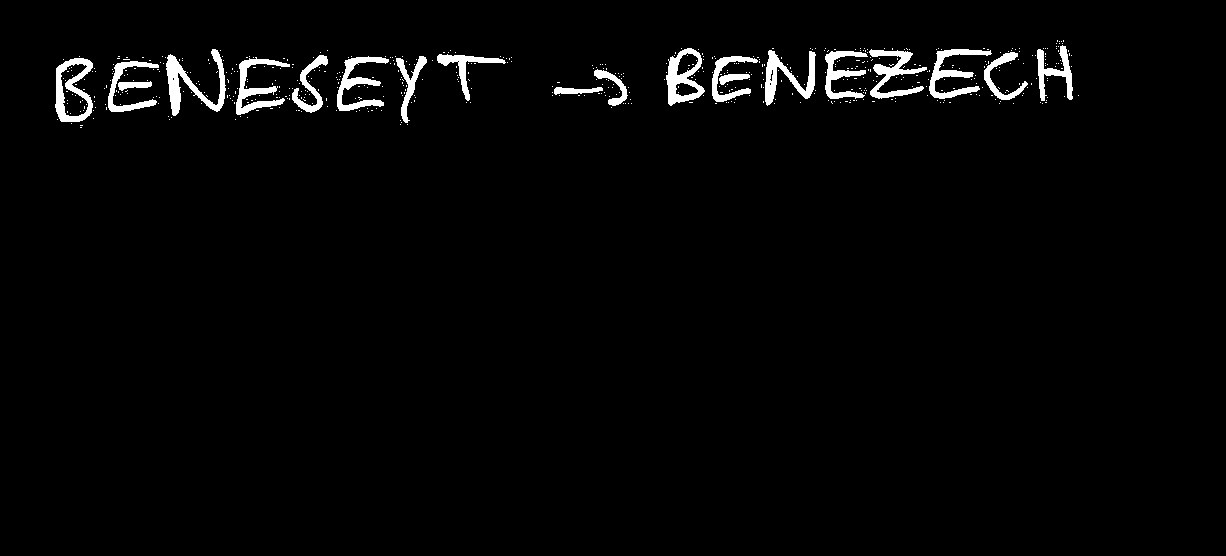 BENESEYT → BENEZECH